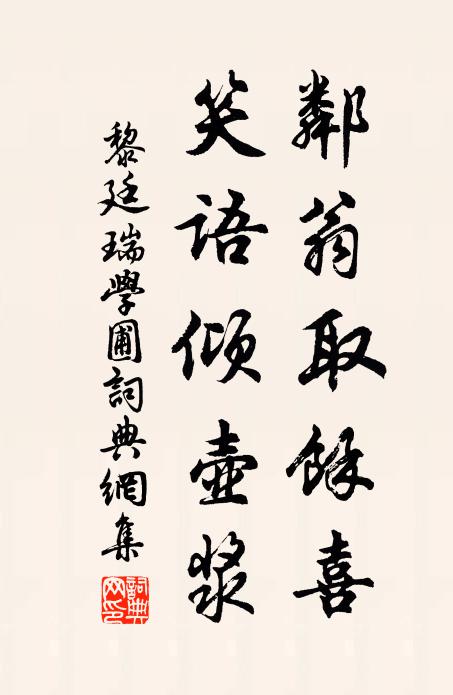 鄰翁取餘喜
笑語傾壺漿
黎廷瑞學圃詞典網集
詞典网印